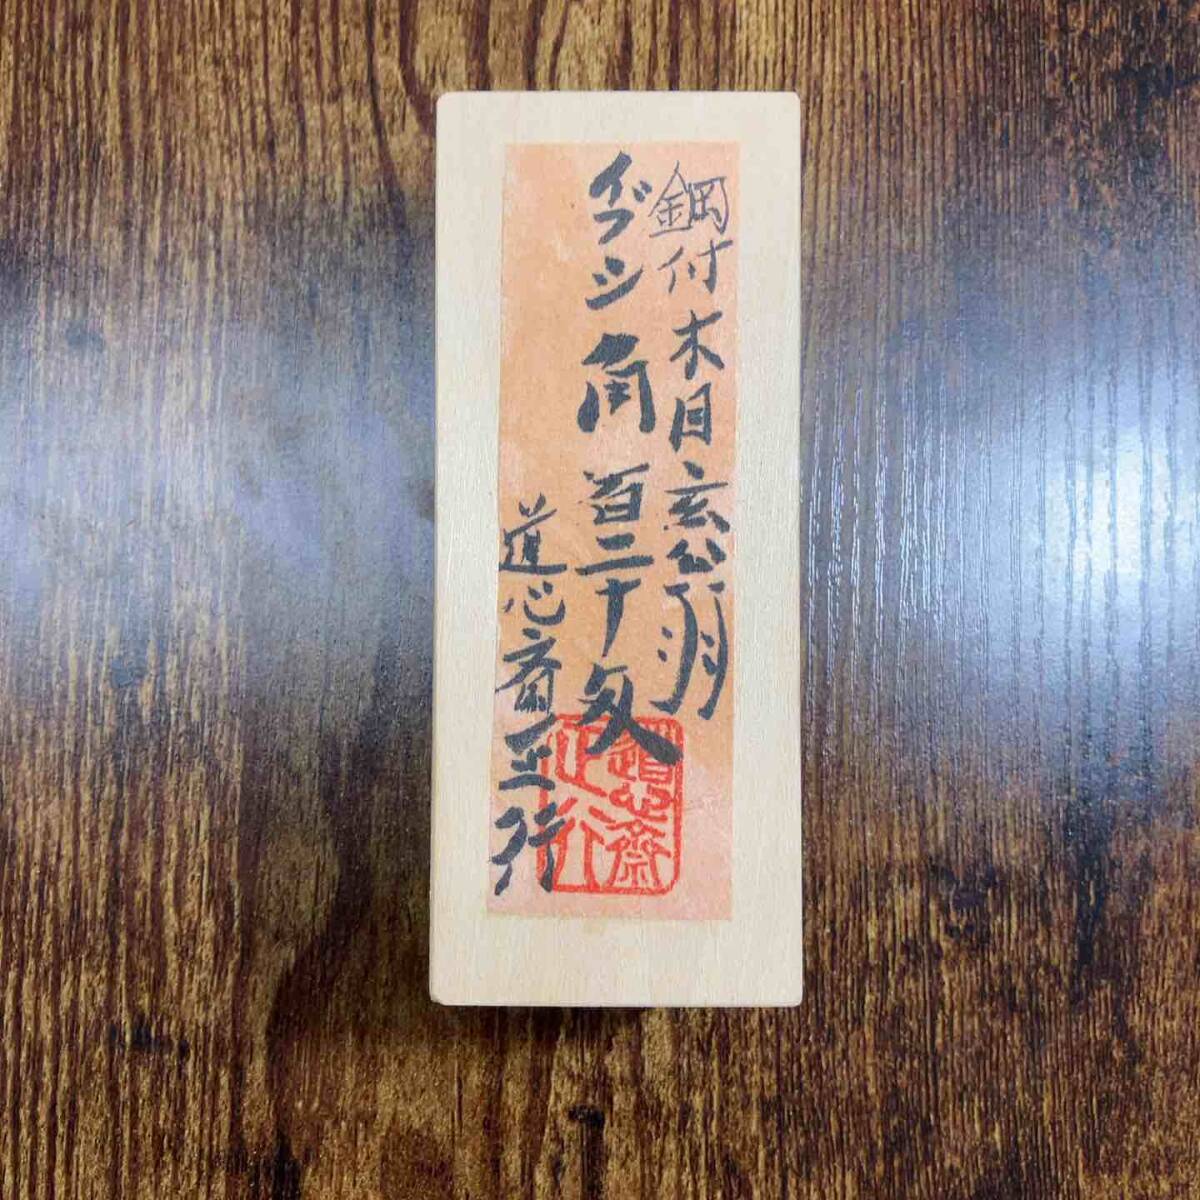 鋼付木目玄翁
イブシ角百二十匁
道心斎正行
道心齋
正行